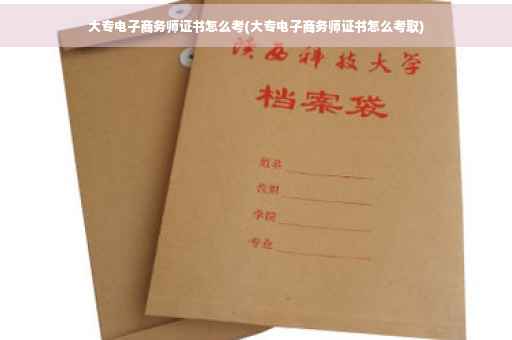 大专电子商务师证书怎么考(大专电子商务师证书怎么考取)
陕西科技大学
档案袋
姓名
学院
专业